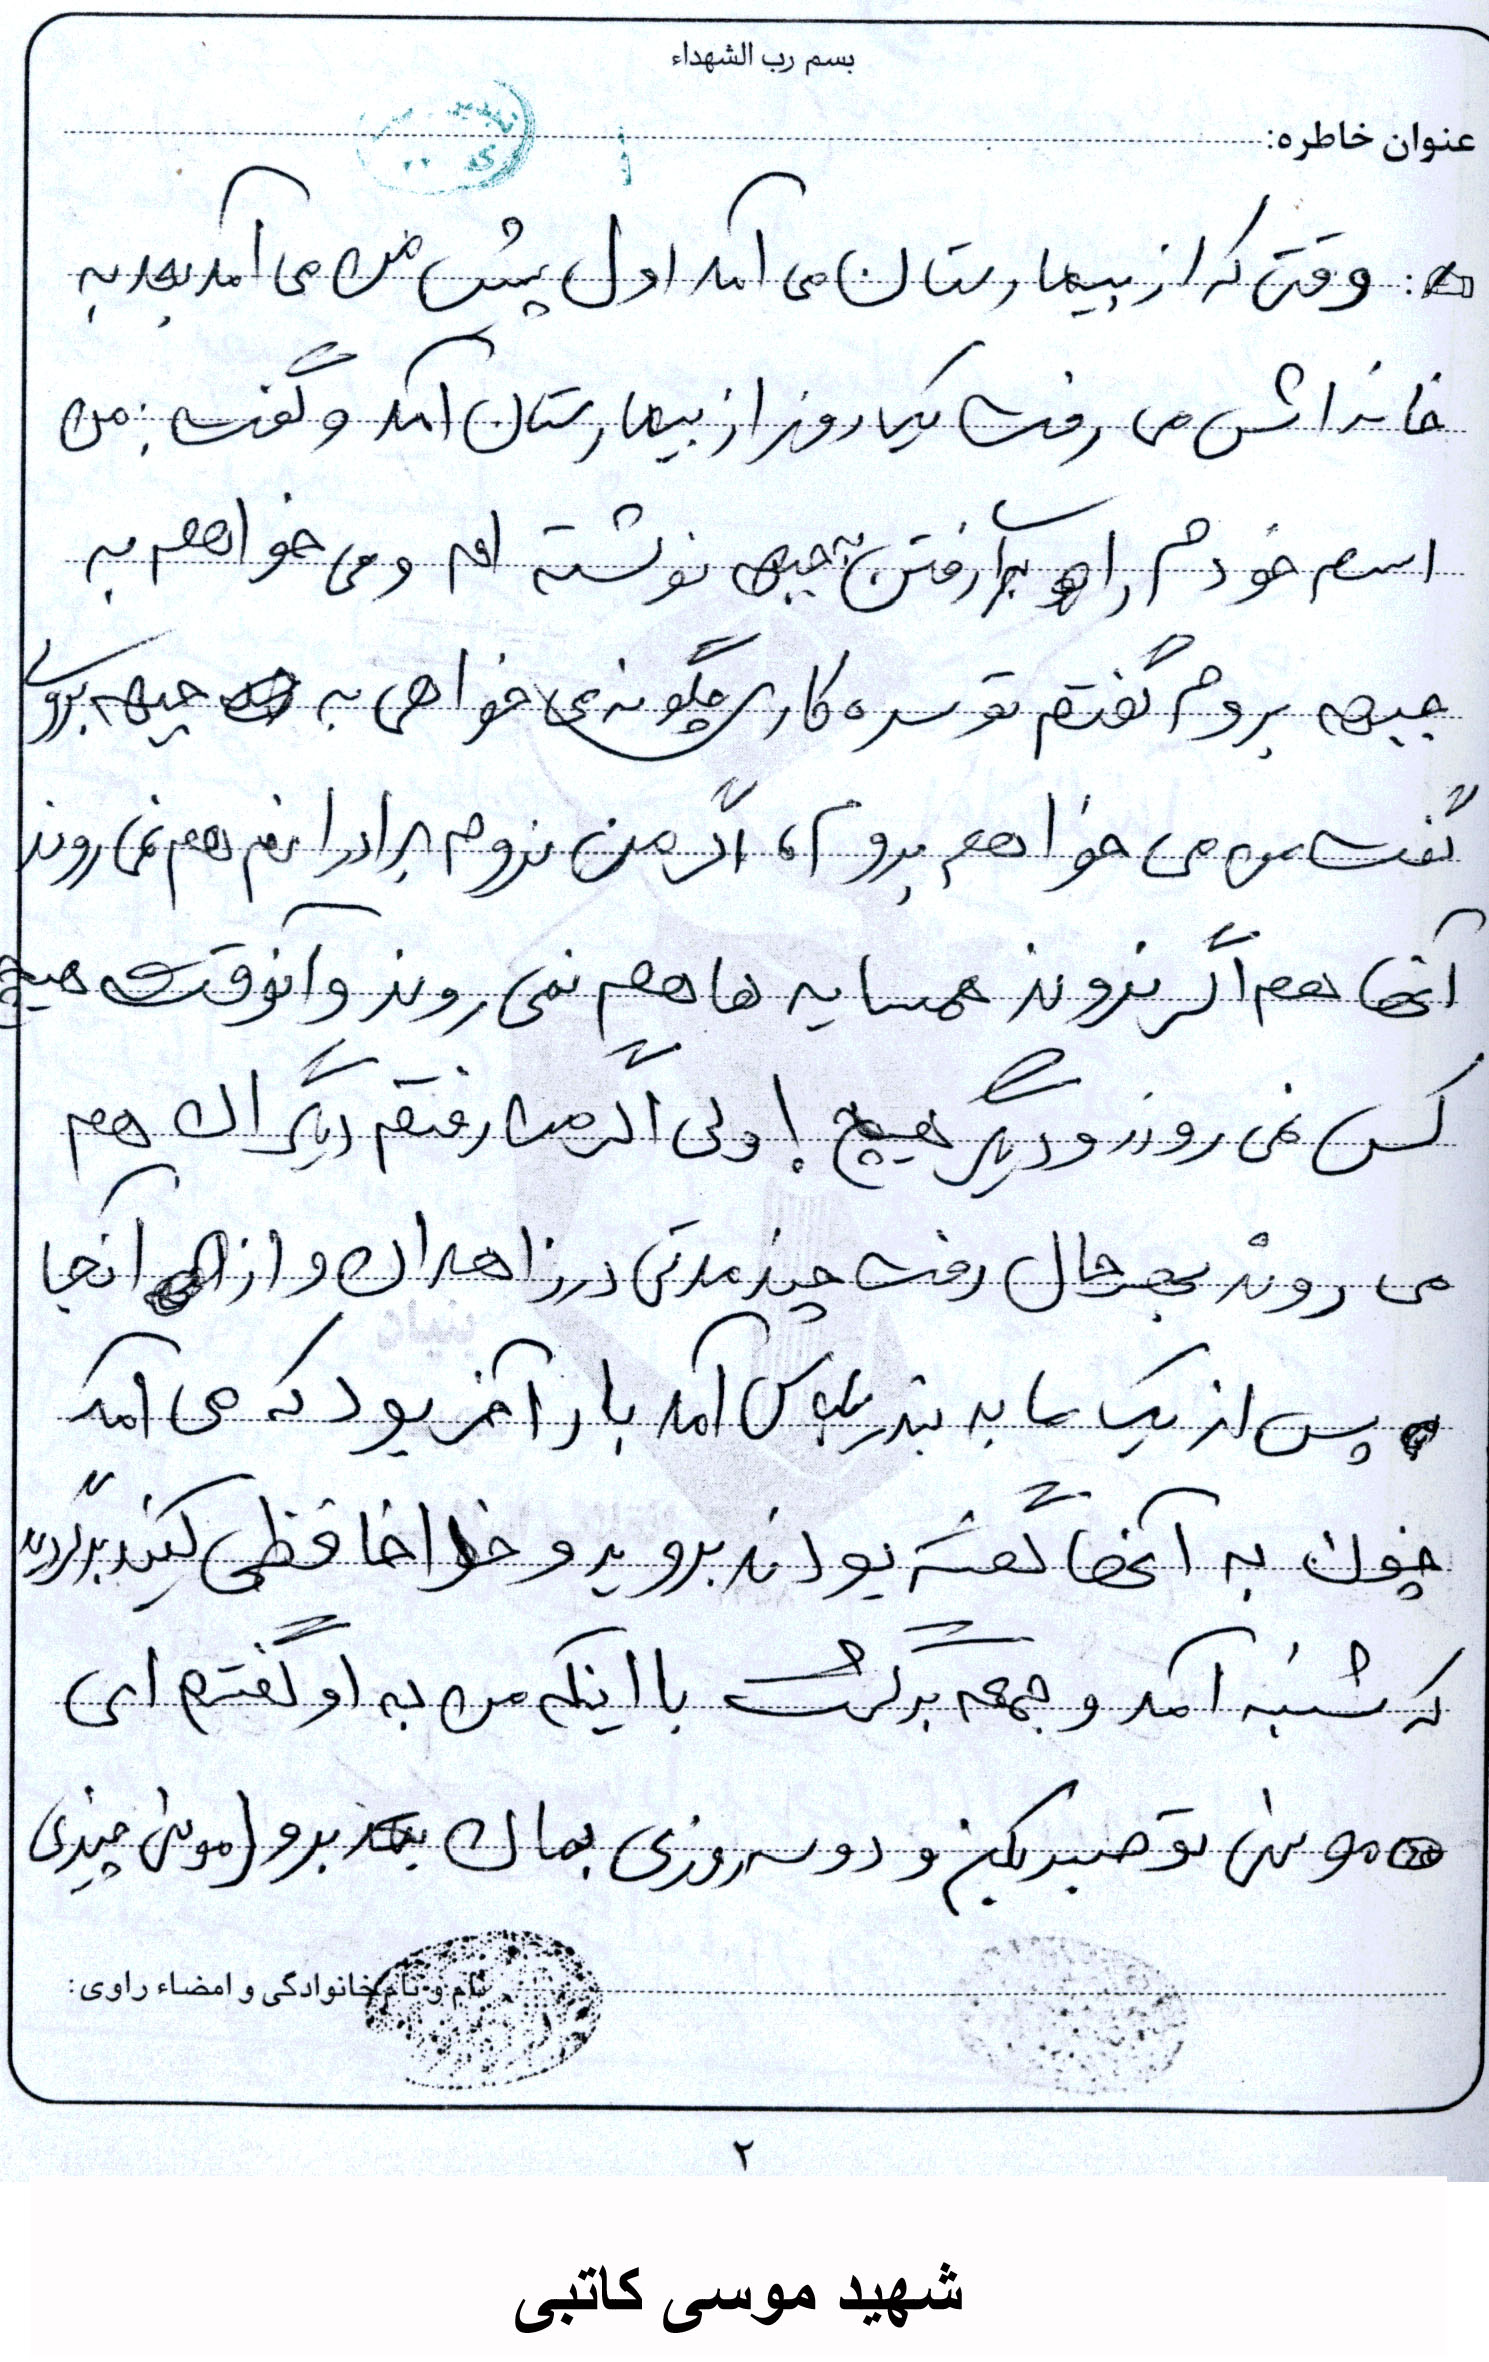 بسم رب الشهداء
عنوان خاطره:
وقتی که از بیمارستان می آمد اول پیش من می آمد بعد به
خانه اش می رفت یک روز از بیمارستان آمد و گفت: من
اسم خودم را برای رفتن به جبهه نوشته ام و می خواهم به
جبهه بروم گفتم تو سره کاری چگونه می خواهی به جبهه بروی
گفت من می خواهم بروم، اگر من نروم برادرانم هم نمی روند
آنها هم اگر نروند همسایه ها هم نمی روند و آنوقت هیچ
کس نمی رود و دیگر هیچ! ولی اگر من رفتم دیگران هم
می روند بهرحال رفت چند مدتی در زاهدان و از آنجا
پس از یک ما به بندر آمد بار آخر بود که می آمد
چون به آنها گفته بودند بروید و خداحافظی کنید برگردید
که شنبه آمد و جمعه برگشت با اینکه من به او گفتم ای
موسی تو صبر بکن و دو سه روزی بمان بعد برو (موسی چیزی
نام و نام خانوادگی و امضاء راوی:
۲
شهید موسی کاتبی